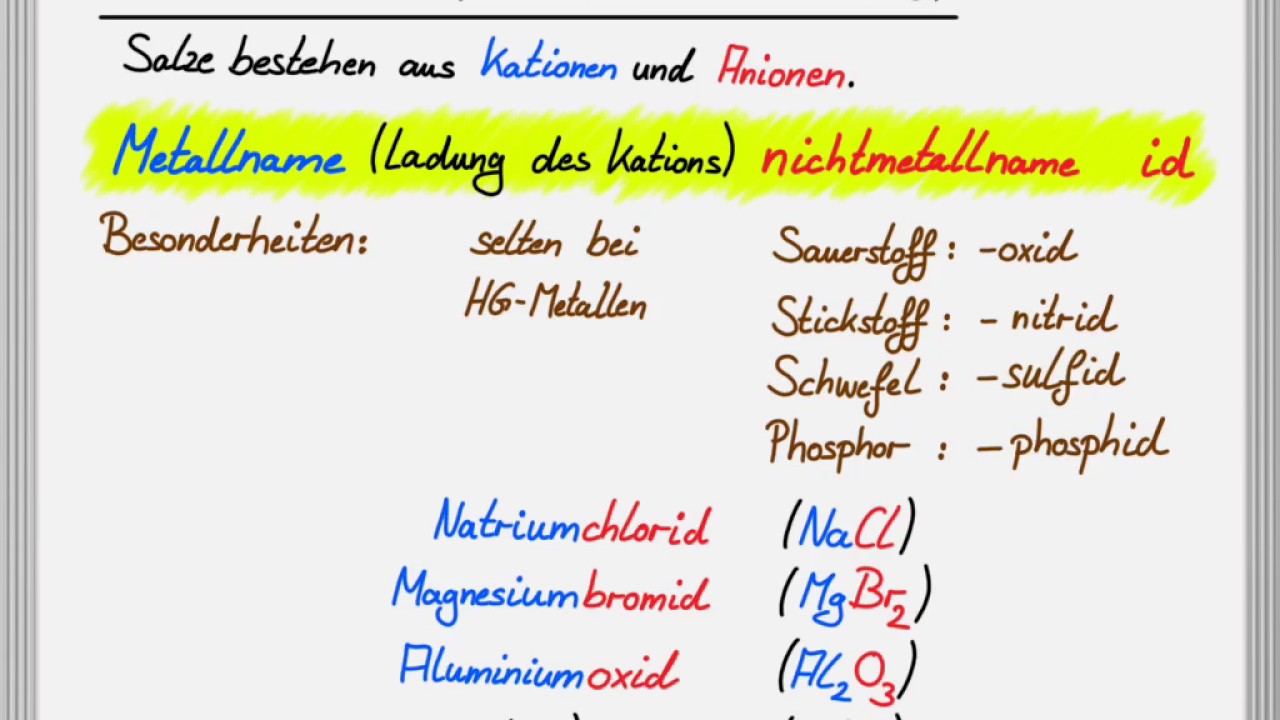 Salze bestehen aus Kationen und Anionen.
Metallname (Ladung des Kations) nichtmetallname id
Besonderheiten: selten bei Sauerstoff: -oxid
HG-Metallen Stickstoff: - nitrid
Schwefel: -sulfid
Phosphor: -phosphid
Natriumchlorid (NaCl)
Magnesiumbromid (MgBr₂)
Aluminiumoxid (Al₂O₃)